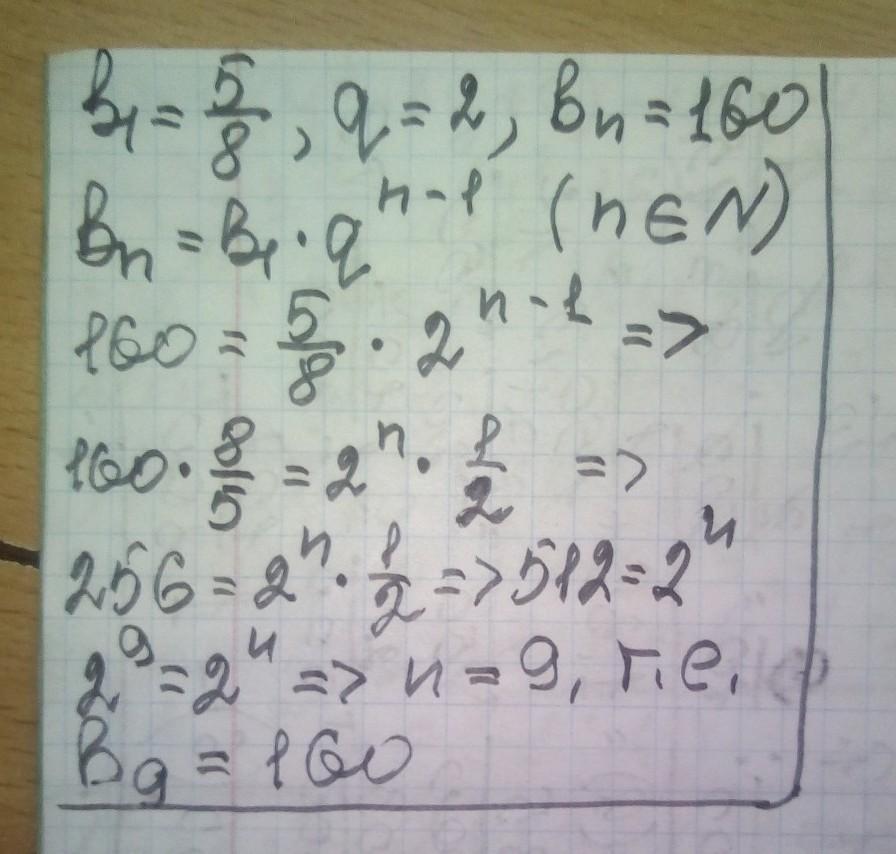 b₁ = 5/8, q = 2, bₙ = 160
bₙ = b₁ · qⁿ⁻¹ (n ∈ N)
160 = 5/8 · 2ⁿ⁻¹ =>
160 · 8/5 = 2ⁿ · 1/2 =>
256 = 2ⁿ · 1/2 => 512 = 2ⁿ
2⁹ = 2ⁿ => n = 9, т.е.
b₉ = 160